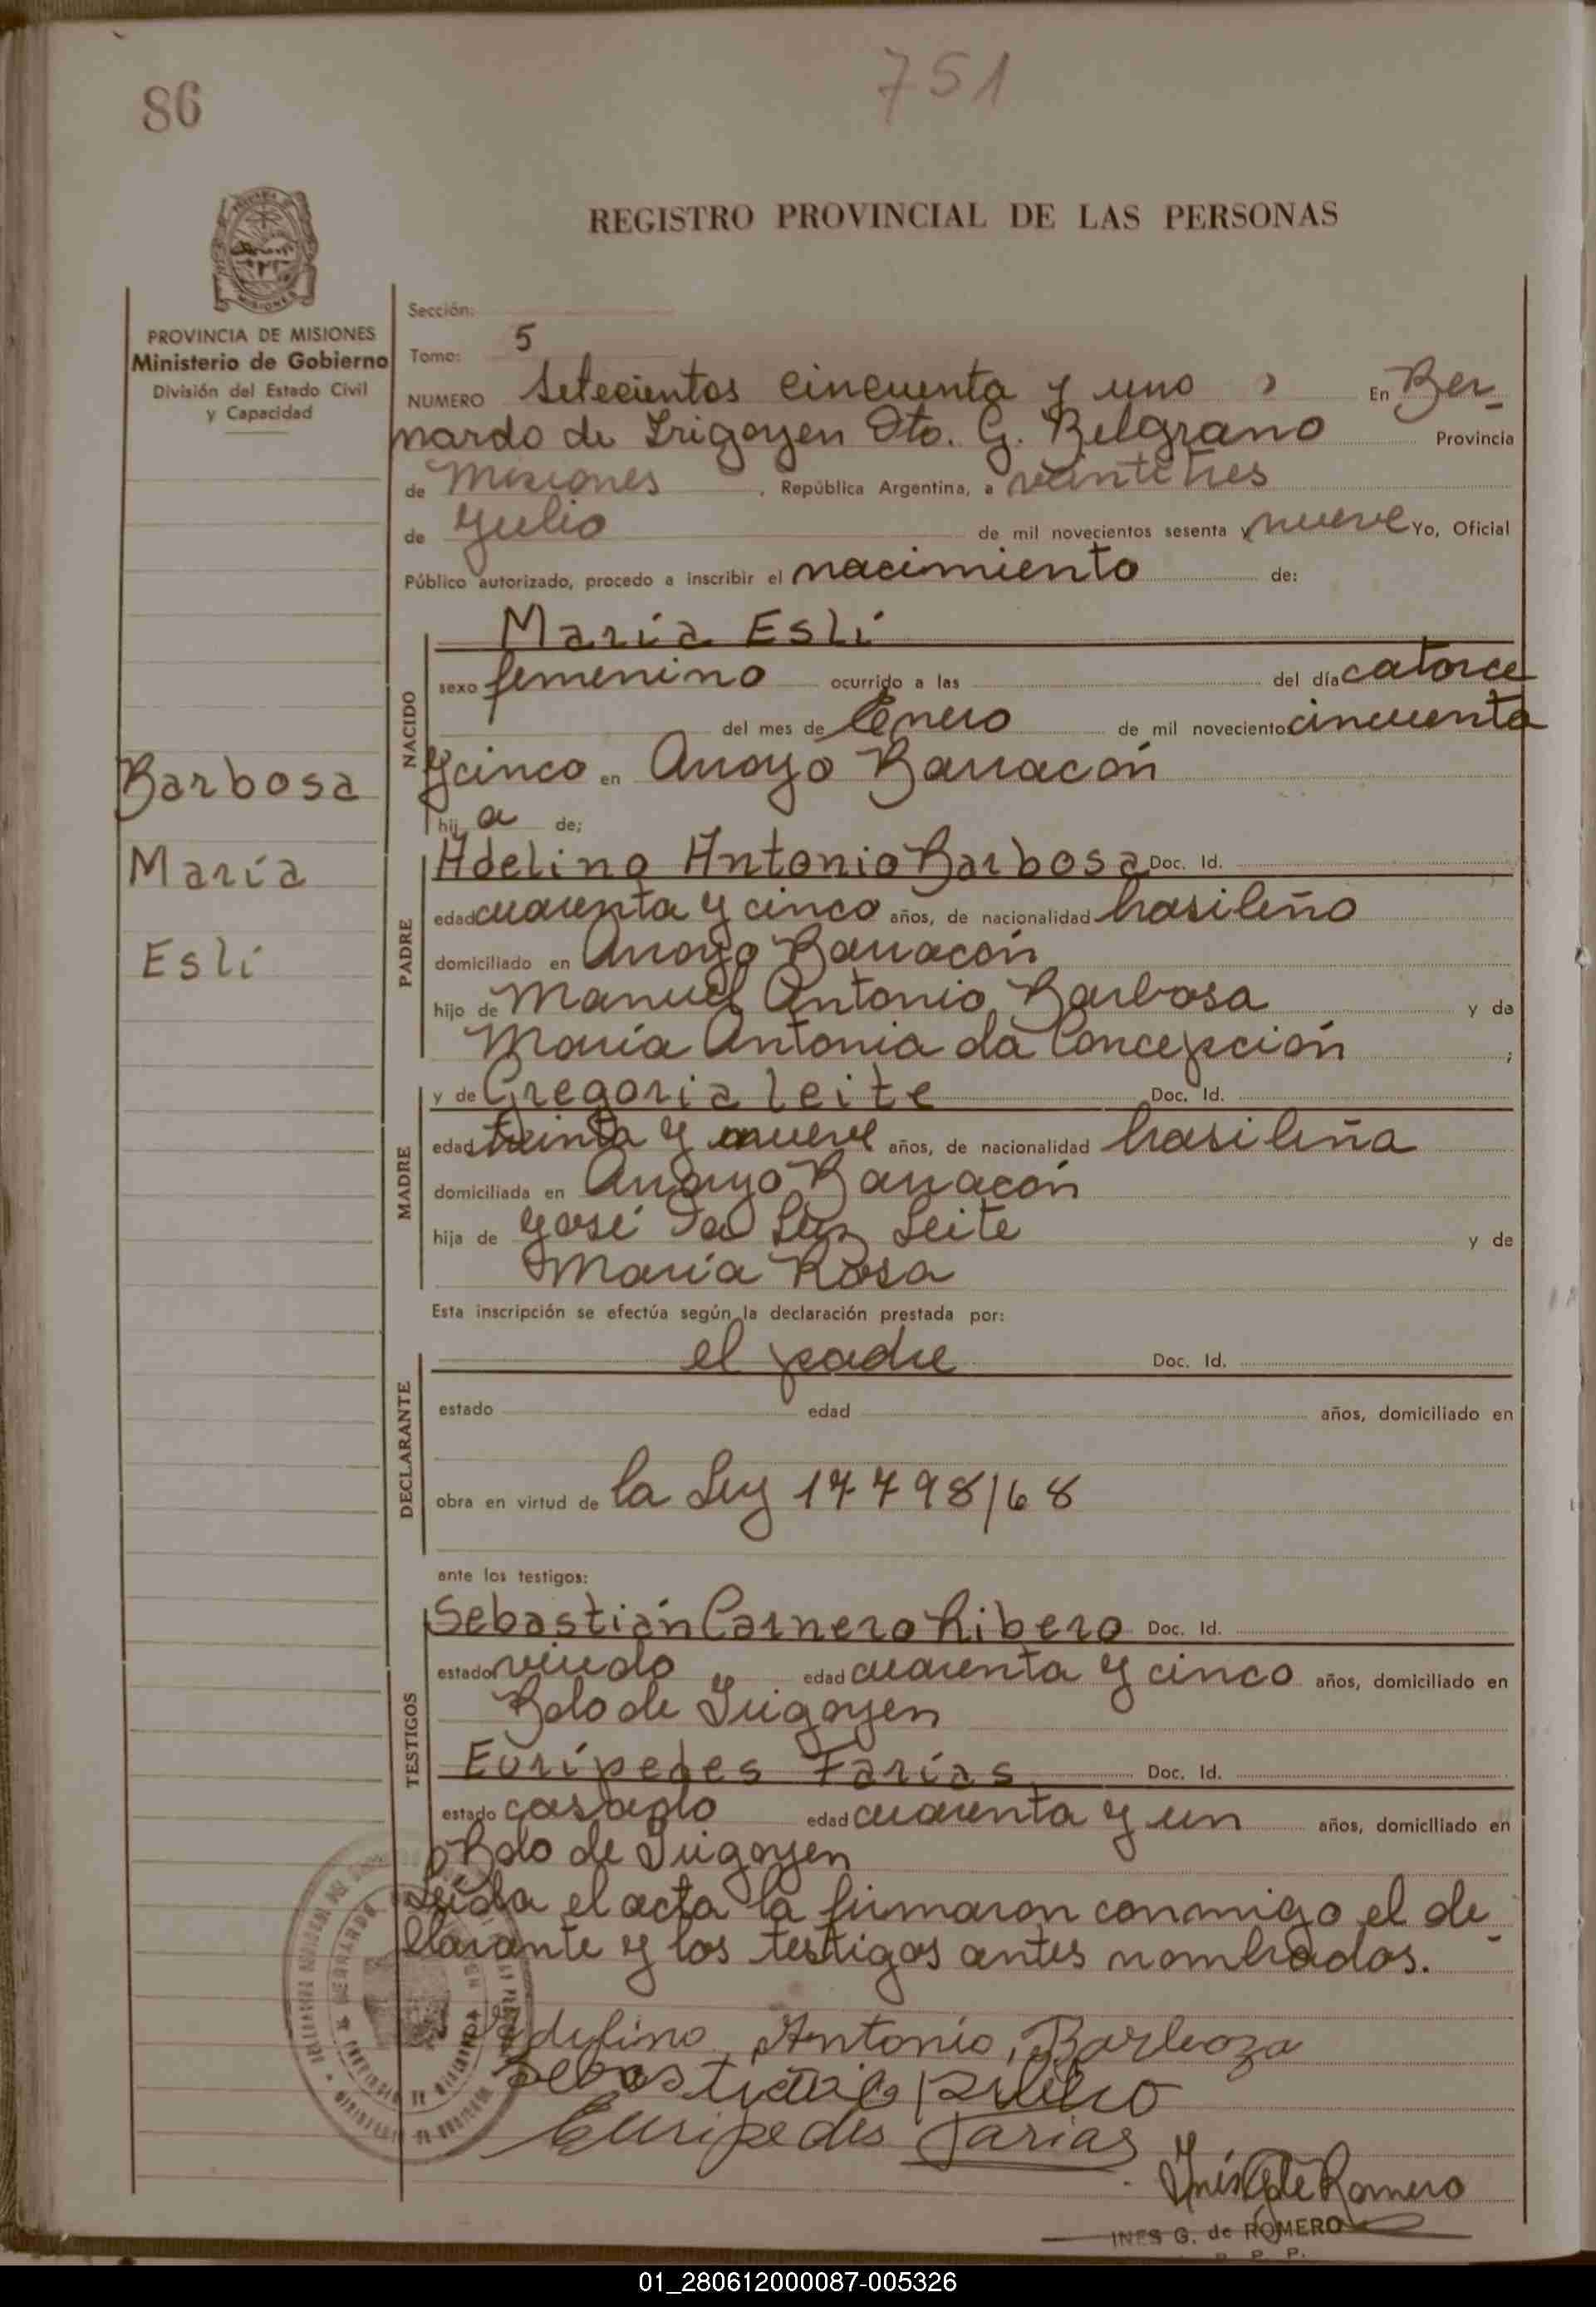 86
751
REGISTRO PROVINCIAL DE LAS PERSONAS
PROVINCIA DE MISIONES
Ministerio de Gobierno
División del Estado Civil
y Capacidad
Sección:
Tomo: 5
NUMERO Setecientos cincuenta y uno En Ber-
nardo de Irigoyen Dto. G. Belgrano Provincia
de Misiones , República Argentina, a veintetres
de Julio de mil novecientos sesenta y nueve Yo, Oficial
Público autorizado, procedo a inscribir el nacimiento de:
NACIDO
María Esli
sexo femenino ocurrido a las del día catorce
del mes de Enero de mil novecientos cincuenta
y cinco en Arroyo Barracón
hij a de;
Barbosa
María
Esli
PADRE
Adelino Antonio Barbosa Doc. Id.
edad cuarenta y cinco años, de nacionalidad brasileño
domiciliado en Arroyo Barracón
hijo de Manuel Antonio Barbosa y de
María Antonia da Concepción ;
MADRE
y de Gregoria Leite Doc. Id.
edad treinta y nueve años, de nacionalidad brasileña
domiciliada en Arroyo Barracón
hija de José Da Luz Leite y de
María Rosa
Esta inscripción se efectúa según la declaración prestada por:
DECLARANTE
el padre Doc. Id.
estado edad años, domiciliado en
obra en virtud de la Ley 17798/68
ante los testigos:
TESTIGOS
Sebastián Carnero Ribero Doc. Id.
estado viudo edad cuarenta y cinco años, domiciliado en
Bdo de Irigoyen
Eurípedes Farías Doc. Id.
estado casado edad cuarenta y un años, domiciliado en
Bdo de Irigoyen
Leida el acta la firmaron conmigo el de-
clarante y los testigos antes nombrados.
Adelino Antonio Barboza
Euripedes Farias
Inés G de Romero
INES G. de ROMERO
01_280612000087-005326